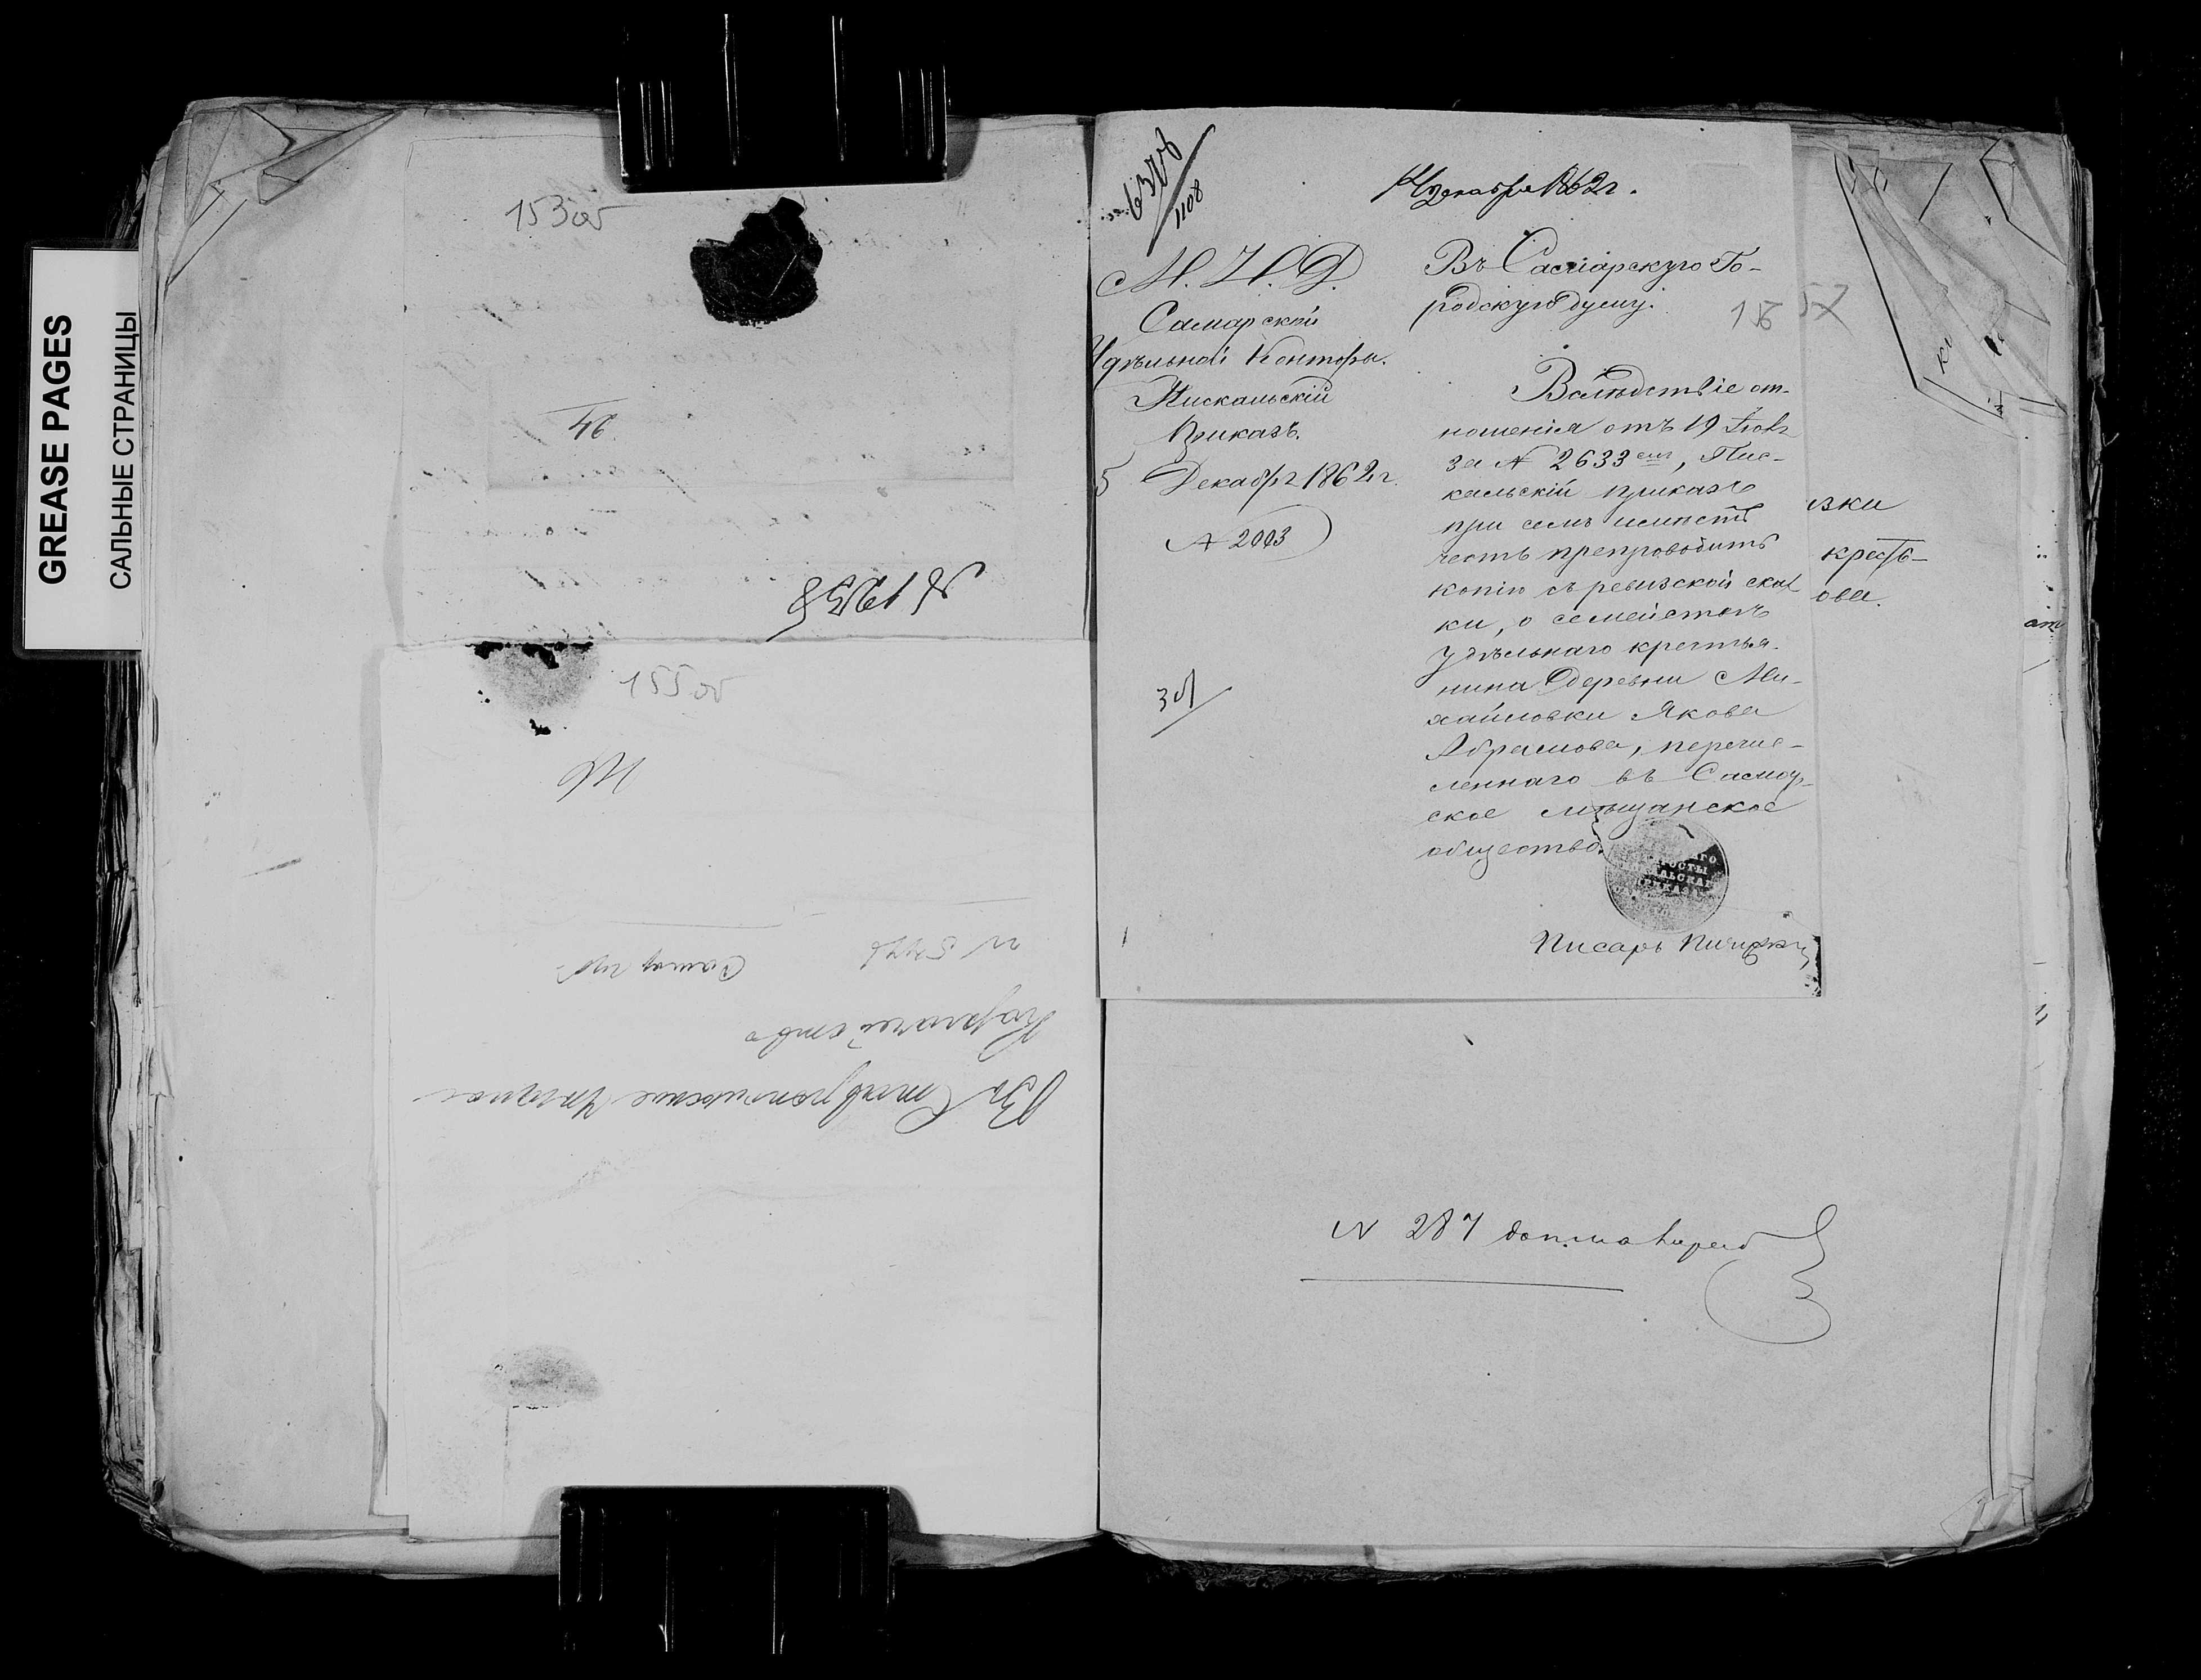 GREASE PAGES
САЛЬНЫЕ СТРАНИЦЫ
153об
46
№ 1258
155об
Самар губ
Казначейство
Въ Ставропольское Уѣздное
6378
1108
14 декабря 1862 г.
М. И. Д.
Самарской
Удѣльной Конторы.
Пискальскій
Приказъ.
5 Декабря 1862 г.
№ 2003
Въ Самарскую Го-
родскую думу.
156
57
Вслѣдствіе от-
ношенія отъ 19 Іюля
за № 2633ем, Пис-
кальскій приказъ
при семъ имѣетъ
честь препроводить
копію съ ревизской сказ
ки, о семействѣ
удѣльнаго крестья-
нина деревни Ми-
хайловки Якова
Абрамова, перечис-
леннаго въ Самар-
ское мѣщанское
общество.
Писарь
зки
кресть-
ова.
№ 287